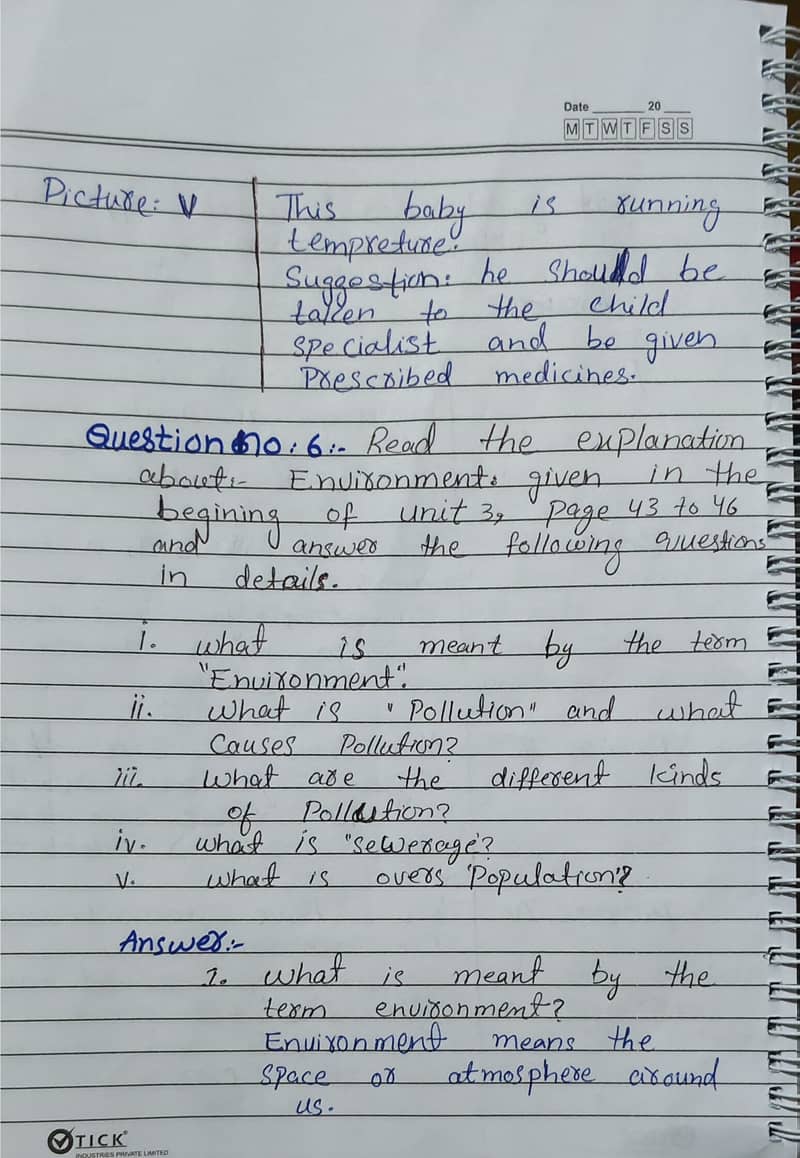 Date ______ 20 ___
M T W T F S S
Picture: V
This baby is running
tempreture.
Suggestion: he Should be
taken to the child
specialist and be given
Prescribed medicines.
Question no: 6:- Read the explanation
about:- Environment. given in the
begining of unit 3, page 43 to 46
and answer the following questions
in details.
i. what is meant by the term
"Environment".
ii. What is "Pollution" and what
Causes Pollution?
iii. What are the different kinds
of Pollution?
iv. what is "sewerage"?
v. what is overs 'Population'?
Answer:-
1. what is meant by the
term environment?
Environment means the
space or atmosphere around
us.
TICK
INDUSTRIES PRIVATE LIMITED